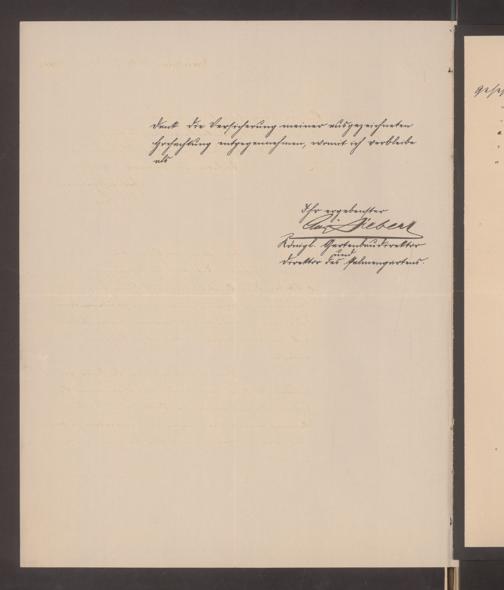 Dank die Versicherung meiner ausgezeichneten
Hochachtung entgegennehmen, womit ich verbleibe
als
Ihr ergebenster
Aug. Siebert
Königl. Gartenbaudirektor
und
Direktor des Palmengartens.